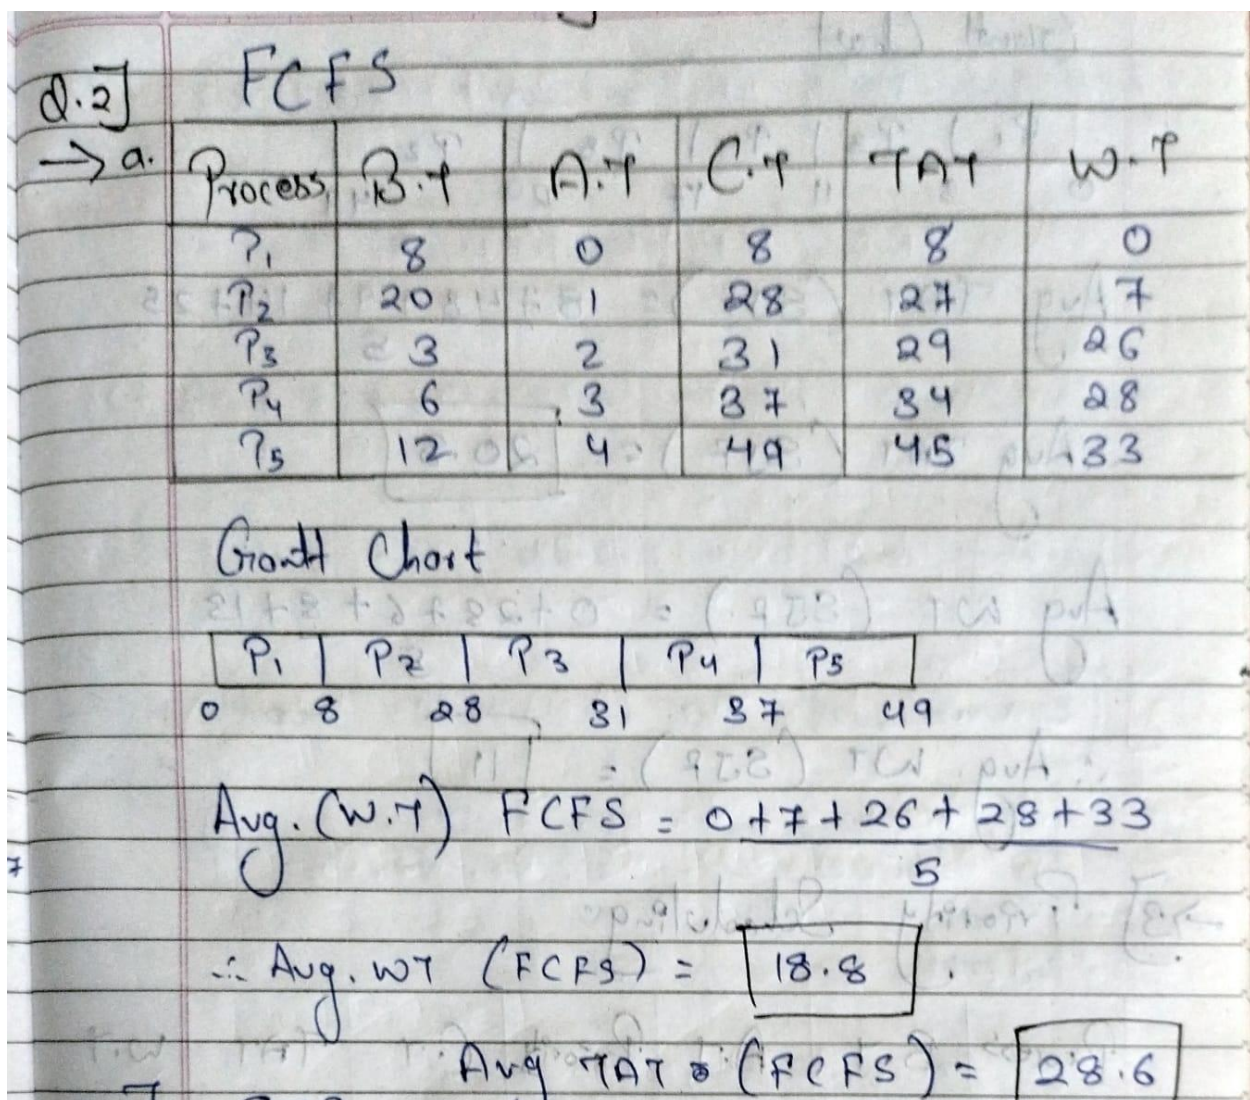 Q.2] FCFS
→ a. Process B.T A.T C.T TAT W.T
P1 8 0 8 8 0
P2 20 1 28 27 7
P3 3 2 31 29 26
P4 6 3 37 34 28
P5 12 4 49 45 33
Gantt Chart
P1 P2 P3 P4 P5
0 8 28 31 37 49
Avg. (W.T) FCFS = 0+7+26+28+33
5
∴ Avg. WT (FCFS) = 18.8
Avg TAT (FCFS) = 28.6